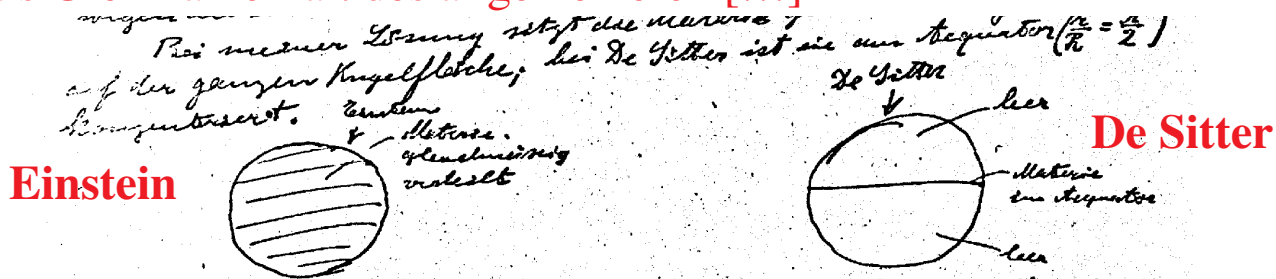 Bei meiner Lösung sitzt die Materie
auf der ganzen Kugelfläche; bei De Sitter ist sie am Aequator (r/R = π/2)
konzentriert.
Einstein
Materie.
gleichmässig
verteilt
Einstein
De Sitter
leer
De Sitter
Materie
im Aequator
leer